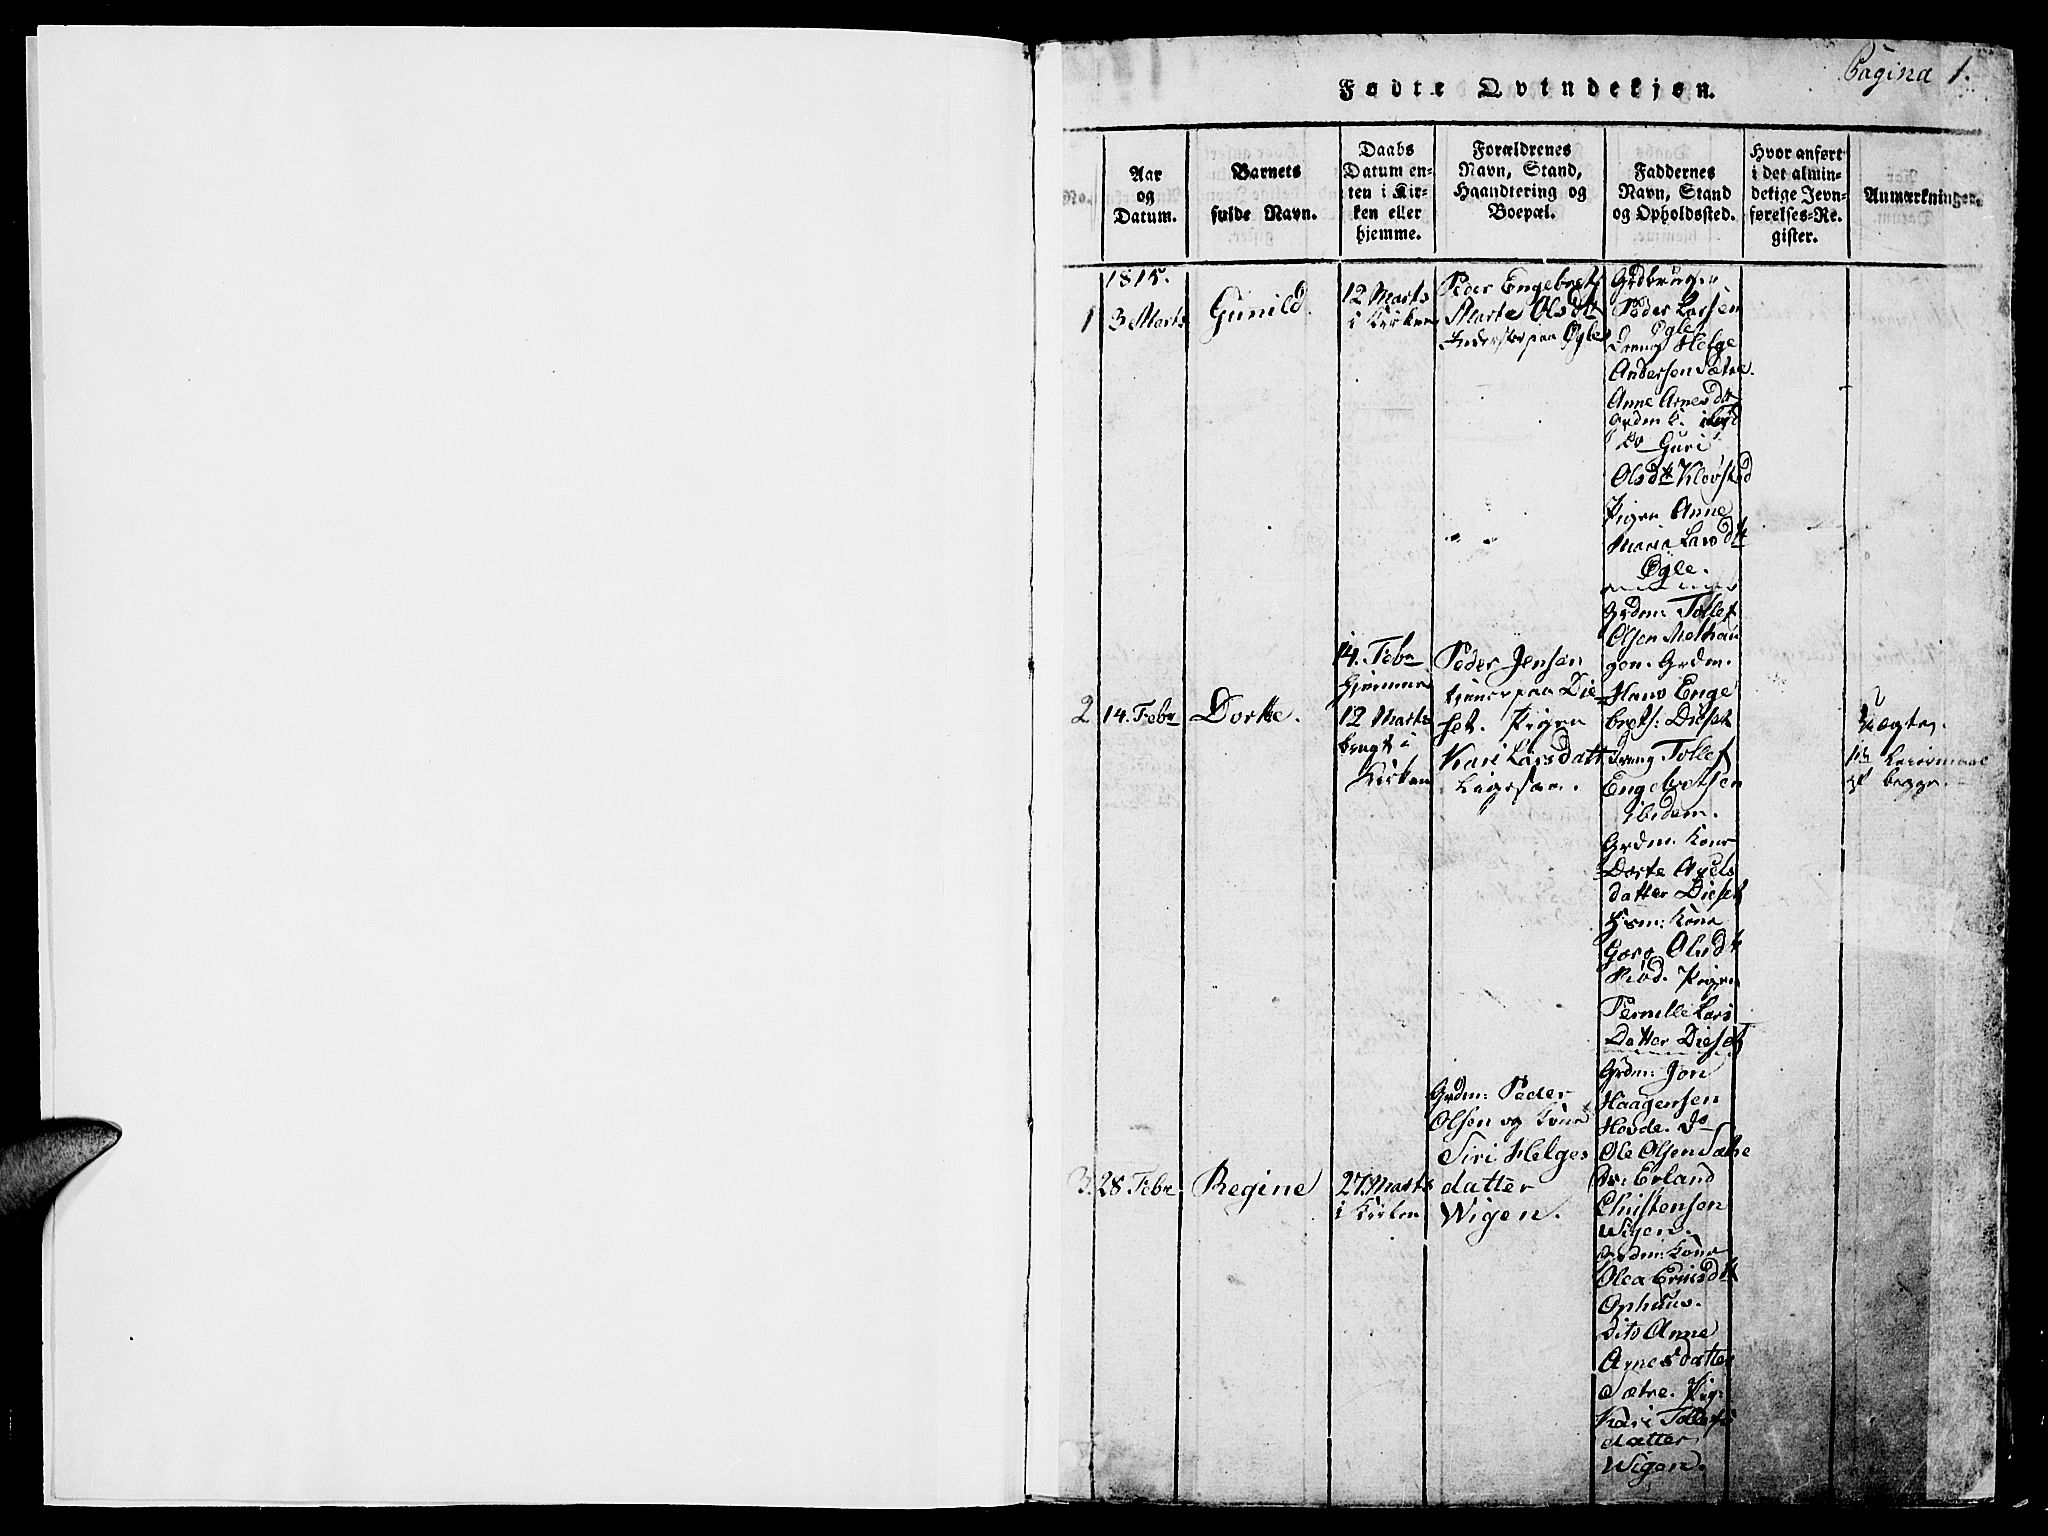 Pagina 1.
Fødte Qvindekjøn.
Aar
og
Datum.
Barnets
fulde Navn.
Daabs
Datum en-
ten i Kir-
ken eller
hjemme.
Forældrenes
Navn, Stand,
Haandtering og
Boepæl.
Faddernes
Navn, Stand
og Opholdssted.
Hvor anført
i det almin-
delige Jevn-
førelses-Re-
gister.
Anmærkninger.
1815.
1
3 Marts
Gunild.
12 Marts
i Kirken
Peder Engebret
Marte Olsdtt
Inderster paa Øgle
Peder Larsen
Øgle
Dreng Helge
Andersen Sætre.
Anne Arnesdtt
do Guri
Olsdtt Kløvstad
Pigen Anne
Maria Larsdtt
Øgle.
2
14. Febr
Dorte.
14. Febr
hjemme
12 Marts
bragt i
Kirken
Peder Jensen
tjener paa Die-
set. Pigen
Kari Larsdatt
Grdm: Tollef
Olsen Melhau
gen. Grdm.
Hans Enge
brets: Dieset
Dreng Tollef
Engebretsen
ibidem.
Grdm: Kone
Dorte Axels
datter Dieset
Hsm: Kone
Olsdtt
Pigen
Pernille Lars
Datter Dieset
Uægte.
Leiermaal
begge.
3.
28 Febr
Regine
27 Marts
i Kirken
Grdm: Peder
Olsen og Kone
Siri Helges
datter
Wigen.
Grdm: Jon
Haagensen
Hovde. do
Ole Olsen Sætre
do: Erland
Christensen
Wigen.
Grdm: Kone
Olea Ernsdtt
Ophuus.
dito Anne
Arnesdatter
Sætre. Pig:
Kari Tollefs
datter
Wigen.